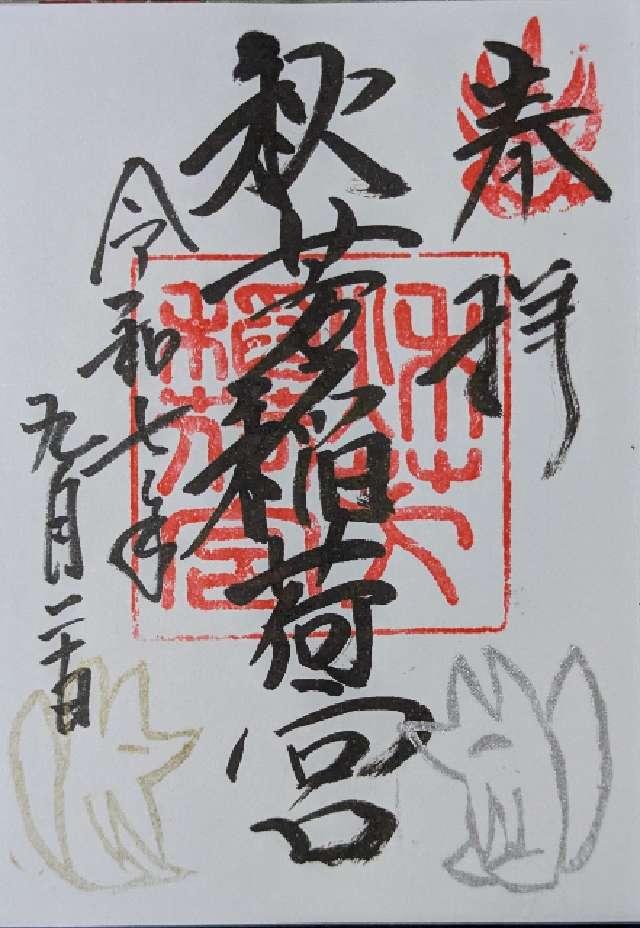 奉拝
秋芳稲荷宮
令和七年
九月二十日